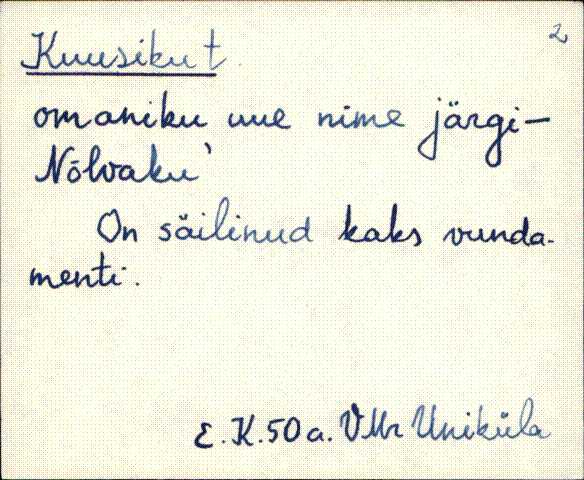 2
Kuusikut
omaniku uue nime järgi—
Nõlvaku'
On säilinud kaks vunda-
menti.
E.K. 50 a. VMr Uniküla